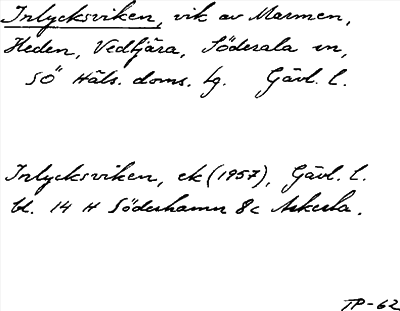 Inlycksviken, vik av Marmen,
Heden, Vedtjära, Söderala sn,
SÖ Häls. doms. tg. Gävl. l.
Inlycksviken, ek (1957), Gävl. l.
bl. 14 H Söderhamn 8c Askesla.
TP-62